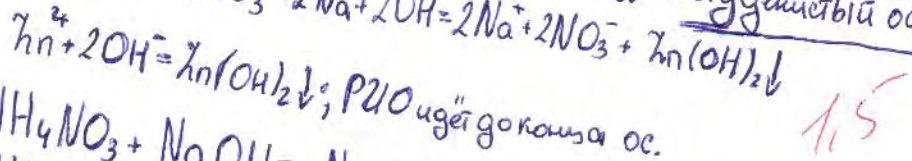 2Na⁺ + 2OH⁻ = 2Na⁺ + 2NO₃⁻ + Zn(OH)₂↓
Zn²⁺ + 2OH⁻ = Zn(OH)₂↓; РИО идёт до конца ос.
1,5
H₄NO₃ + NaOH =